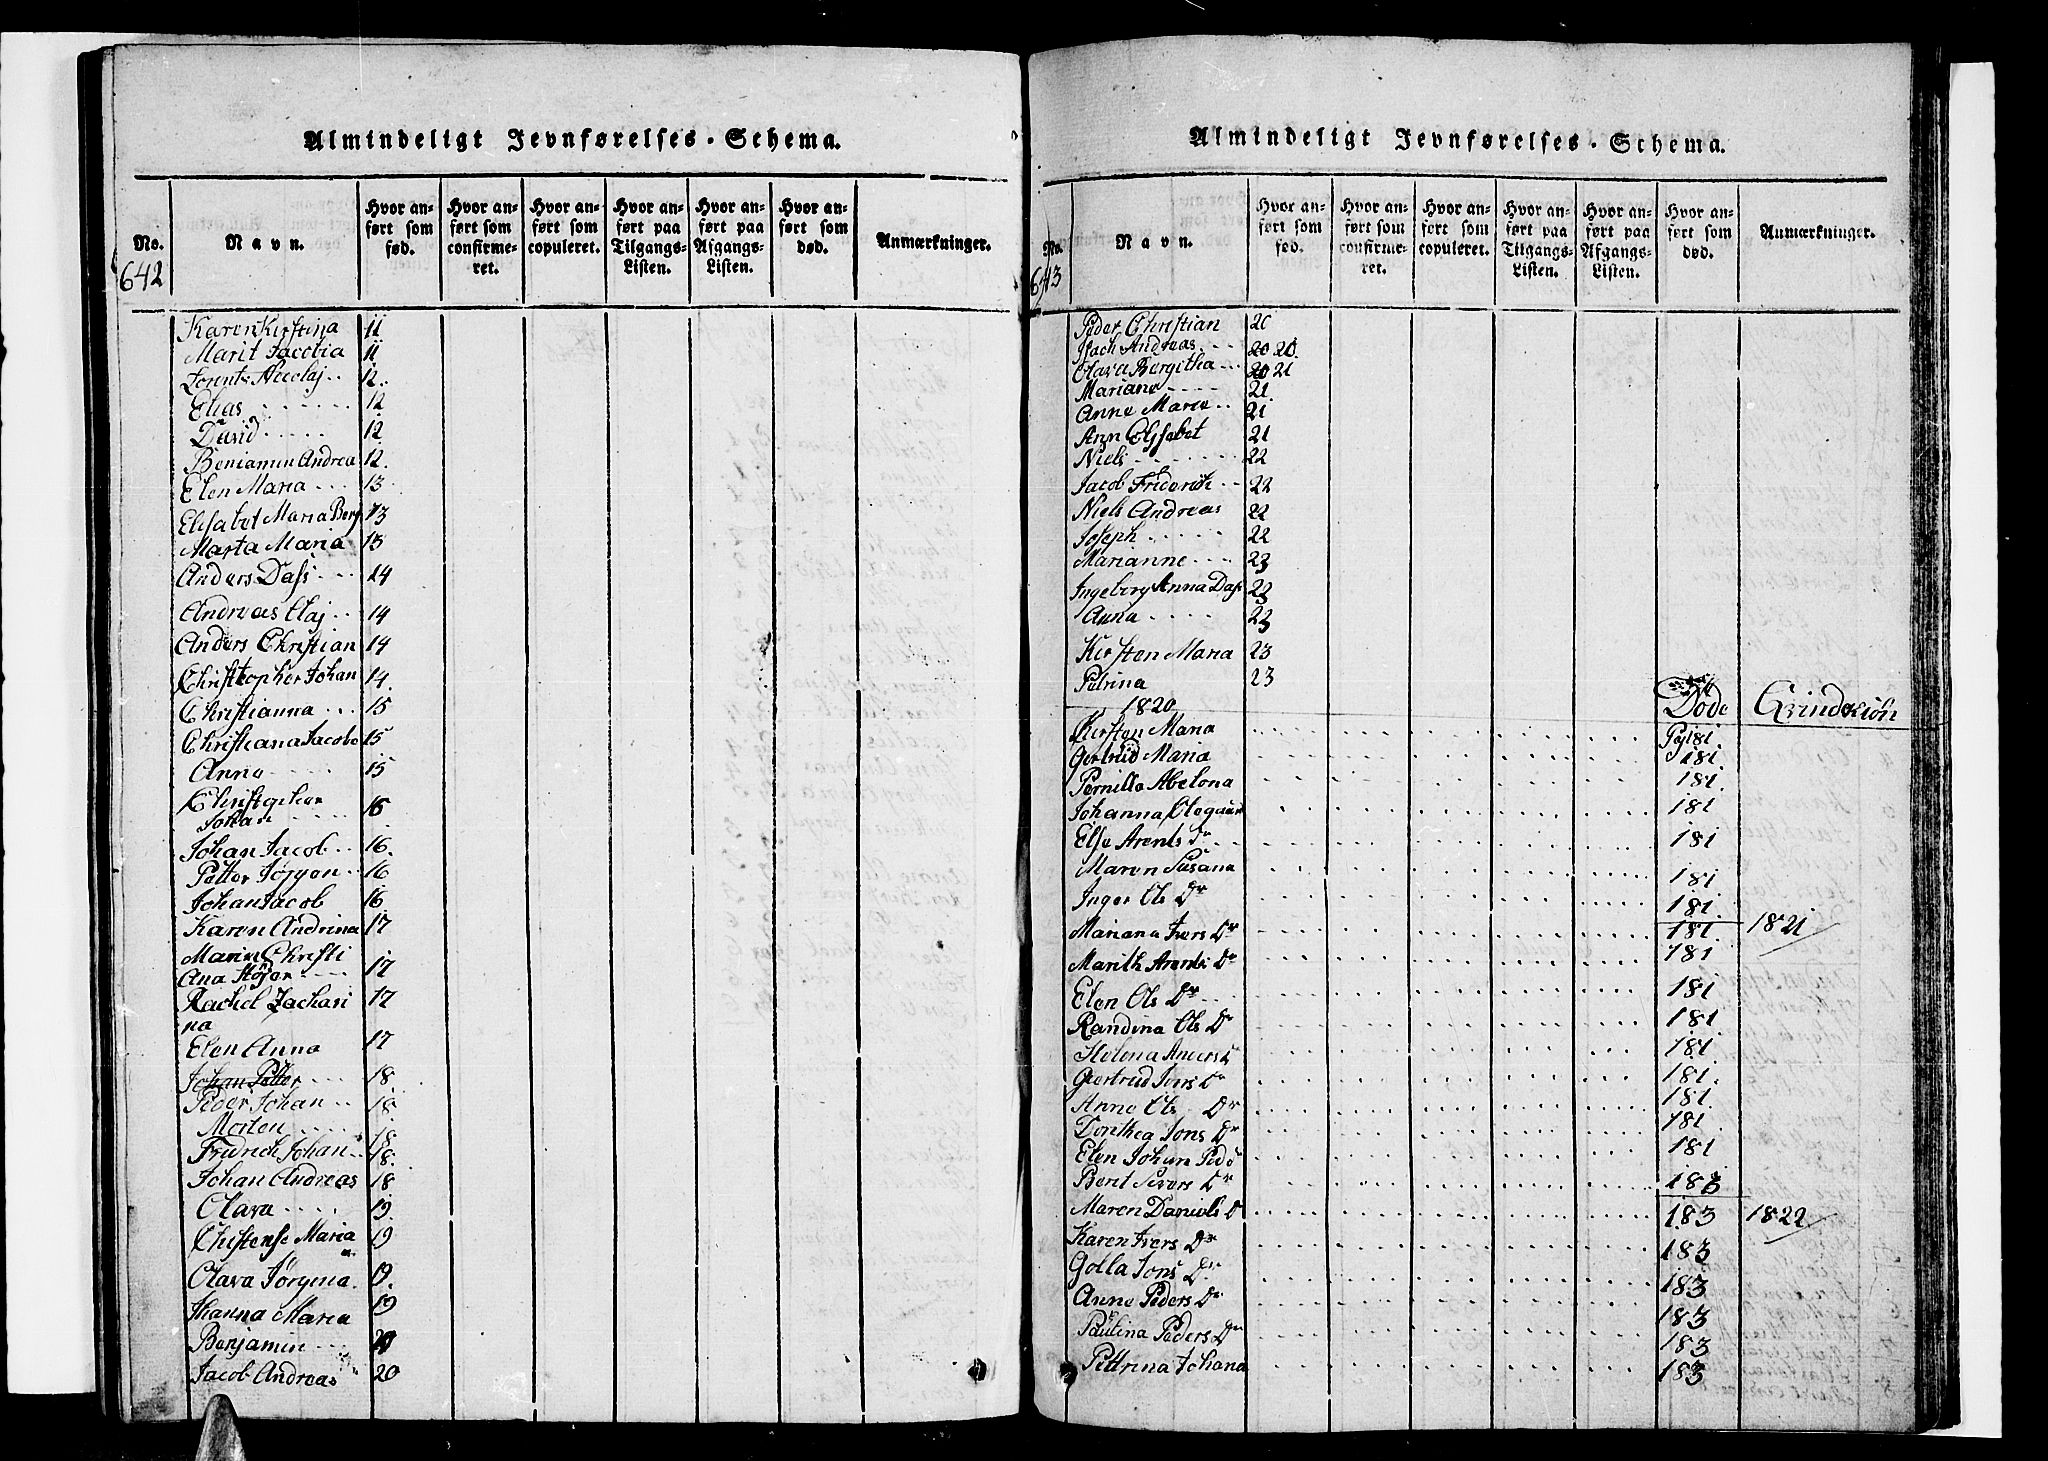 Almindeligt Jevnførelses-Schema.
No.
642
Navn.
Hvor anført som fød.
Hvor anført som confirmeret.
Hvor anført som copuleret.
Hvor anført paa Tilgangs-Listen.
Hvor anført paa Afgangs-Listen.
Hvor anført som død.
Anmærkninger.
Karen Kirstina 11
Marit Jacobia 11
Lorents Nicolaj 12
Elias 12
David 12
Beniamin Andrea 12.
Elen Maria 13
Elisabet Maria Berg 13
Marta Maria 13
Anders Dass 14
Andreas Olaj 14
Anders Christian 14
Christopher Johan 14.
Christianna 15
Christiana Jacobe 15
Anne 15
Christopher
Johan 16
Johan Jacob 16.
Petter Jørgen 16
Johan Jacob 16
Karen Andrina 17
Maren Christi
Ana Høyer 17
Rachel Zachari 17
na
Elen Anna 17
Johan Petter 18
Peder Johan 18
Morten 18
Fridrich Johan 18.
Johan Andreas 18
Olava 19
Christense Maria 19
Olava Jørgina 19.
Johanna Maria 19
Benjamin 20
Jacob Andreas 20
Almindeligt Jevnførelses-Schema.
No.
643
Navn.
Hvor anført som fød.
Hvor anført som confirmeret.
Hvor anført som copuleret.
Hvor anført paa Tilgangs-Listen.
Hvor anført paa Afgangs-Listen.
Hvor anført som død.
Anmærkninger.
Peder Christian 20
Isach Andreas 20 21
Olava Bergitha 20 21
Mariane 21
Anne Marie 21
Ann Elssebet 21
Niels 22
Jacob Friderich 22
Niels Andreas 22
Joseph 22
Marianne 23
Ingeborg Anna Dass 23
Anna 23
Kirsten Maria 23
Petrina 23
1820 Døde Qvindekiøn
Kirsten Maria Pag 181
Gertrud Maria 181.
Pernille Abelona 181
Johanna Olegaard 181
Else Arents Dr 181
Maren Susana 181
Inger Ols Dr 181
Mariana Ivers Dr 181 1821
Marith Arents Dr 181
Elen Ols Dr 181
Randina Ols Dr 181
Helena Anders D 181
Giertrud Jens Dr 181.
Anne Ols Dr 181
Dorthea Jons Dr 181
Elen Johan Ped 181
Berit Sivers Dr 183
Maren Daniels D 183 1822
Karen Ivers Dr 183
Golla Jons Dr 183
Anne Peders Dr 183
Paulina Peders Dr 183
Pettrina Johana 183